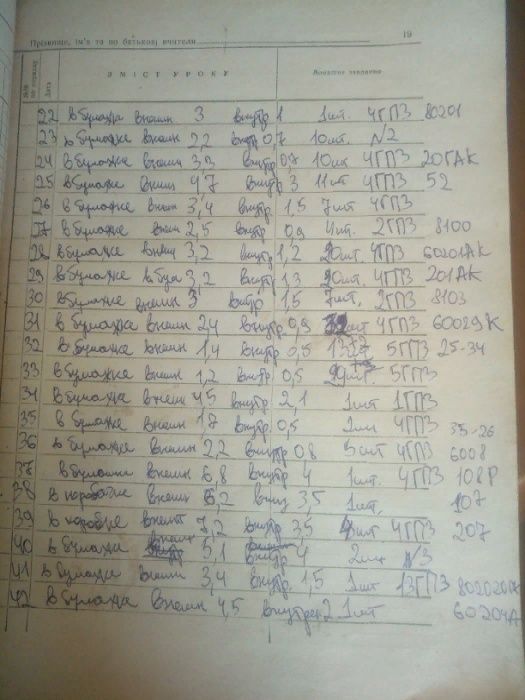 19
Прізвище, ім'я та по батькові вчителя
№№ по порядку
Дата
ЗМІСТ УРОКУ
Домашнє завдання
22 в бумажке внешн 3 внутр 1 1шт. 4ГПЗ 80201
23 в бумажке внешн 2,2 внутр 0,7 10шт. N2
24 в бумажке внешн 3,2 внутр 0,7 10шт 4ГПЗ 20ГАК
25 в бумажке внеш 4,7 внутр 3 11шт 4ГПЗ 52
26 в бумажке внешн 3,4 внутр 1,5 7шт 4ГПЗ
27 в бумажке внеш 2,5 внутр 0,9 4шт. 2ГПЗ 8100
28 в бумажке внеш 3,2 внутр 1,2 20шт. 4ГПЗ 60201АК
29 в бумажке в бум 3,2 внутр 1,3 20шт. 4ГПЗ 201АК
30 в бумажке внешн 3 внутр 1,5 7шт, 2ГПЗ 8103
31 в бумажке внешн 2,4 внутр 0,9 шт 4ГПЗ 60029К
32 в бумажке внешн 1,4 внутр 0,5 5ГПЗ 25-34
33 в бумажке внешн 1,2 внутр 0,5 5ГПЗ
34 в бумажке внеш 4,5 внутр 2,1 1шт 1ГПЗ
35 в бумажке внешн 1,7 внутр 0,5 2шт 4ГПЗ 35-26
36 в бумажке внешн 2,2 внутр 0,8 шт 4ГПЗ 6008
37 в бумажке внешн 6,8 внутр 4 1шт. 4ГПЗ 108Р
38 в коробке внешн 6,2 3,5 1шт, 107
39 в коробке внешн 7,2 внутр 3,5 шт 4ГПЗ 207
40 в бумажке внешн 5,1 внутр 4 2шт N3
41 в бумажке внешн 3,4 внутр 1,5 1шт 13ГПЗ
42 в бумажке внешн 4,5 внутрен 2 1шт 60204А